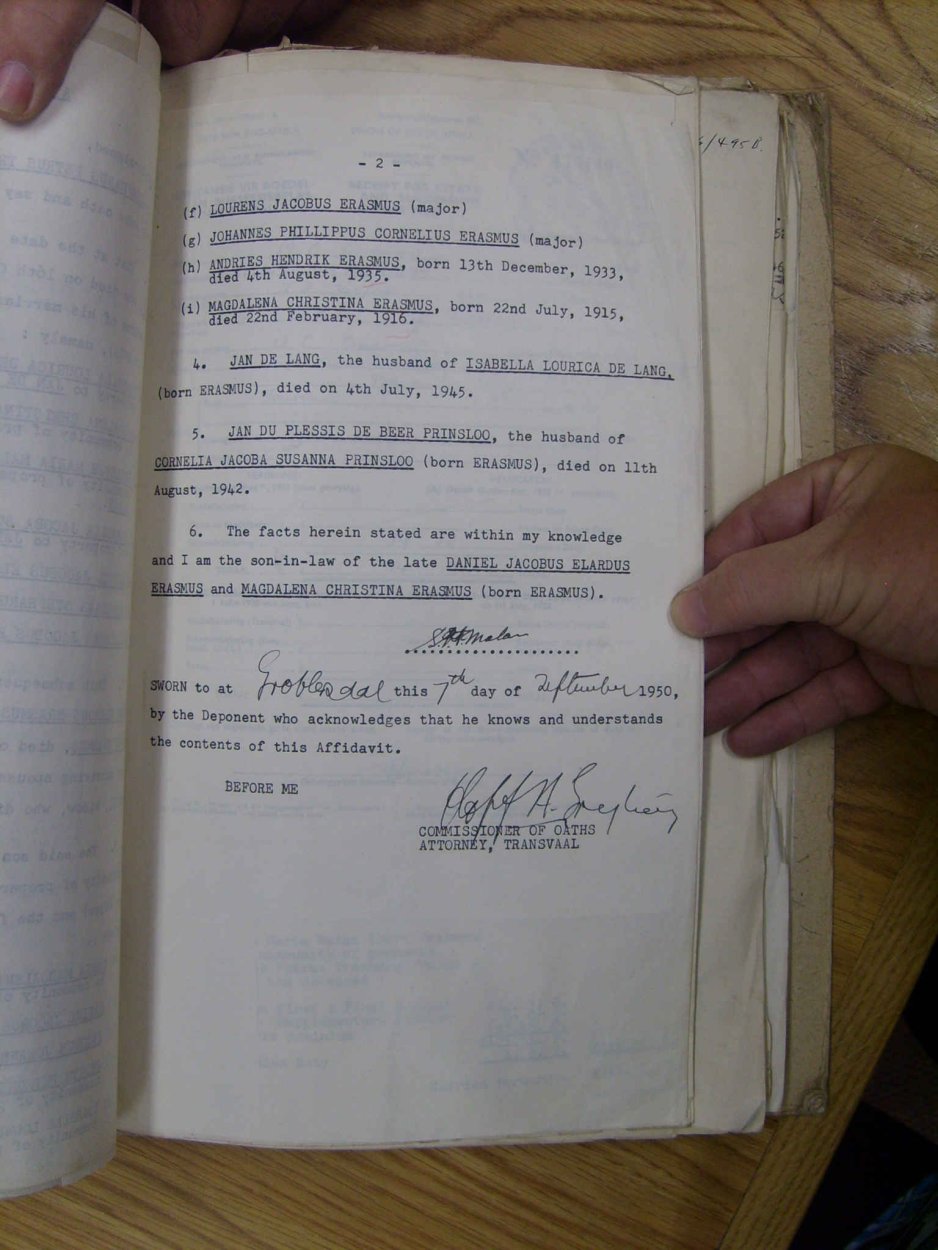 6/495B.
- 2 -
(f) LOURENS JACOBUS ERASMUS (major)
(g) JOHANNES PHILLIPPUS CORNELIUS ERASMUS (major)
(h) ANDRIES HENDRIK ERASMUS, born 13th December, 1933,
died 4th August, 1935.
(i) MAGDALENA CHRISTINA ERASMUS, born 22nd July, 1915,
died 22nd February, 1916.
4. JAN DE LANG, the husband of ISABELLA LOURICA DE LANG,
(born ERASMUS), died on 4th July, 1945.
5. JAN DU PLESSIS DE BEER PRINSLOO, the husband of
CORNELIA JACOBA SUSANNA PRINSLOO (born ERASMUS), died on 11th
August, 1942.
6. The facts herein stated are within my knowledge
and I am the son-in-law of the late DANIEL JACOBUS ELARDUS
ERASMUS and MAGDALENA CHRISTINA ERASMUS (born ERASMUS).
Malan
SWORN to at Groblersdal this 7th day of September 1950,
by the Deponent who acknowledges that he knows and understands
the contents of this Affidavit.
BEFORE ME
COMMISSIONER OF OATHS
ATTORNEY, TRANSVAAL